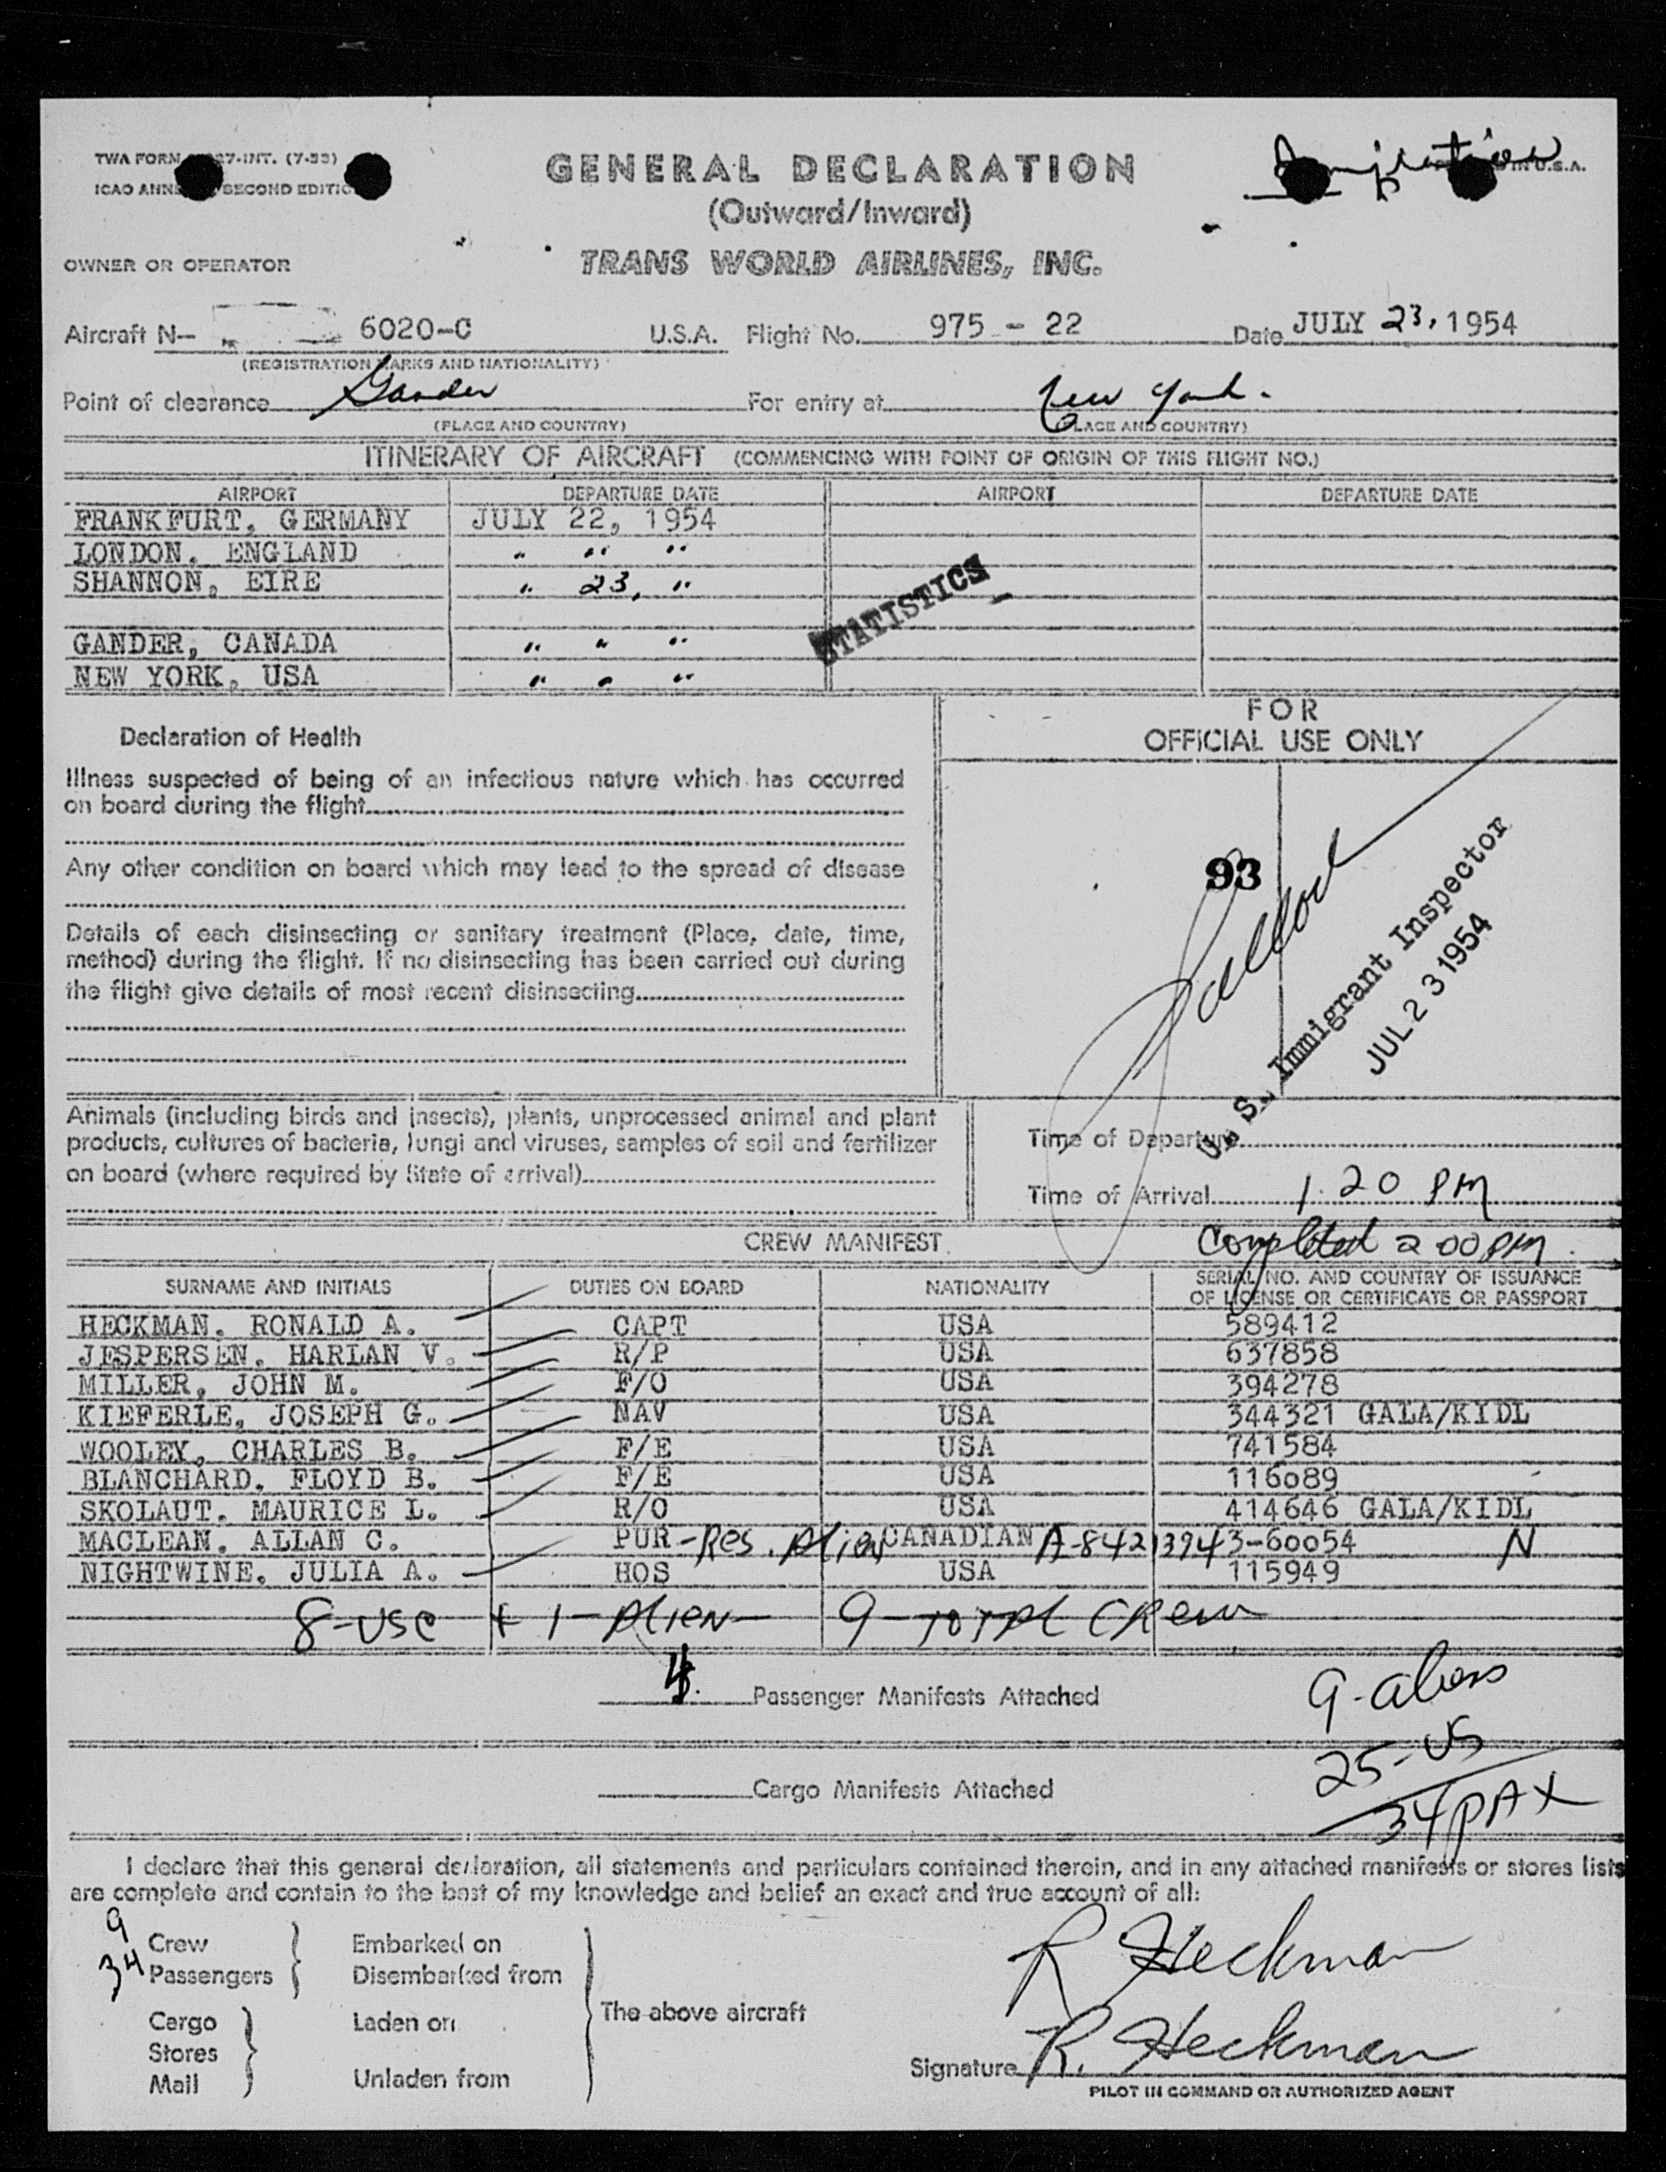 TWA FORM 27-INT. (7-53)
ICAO ANNE SECOND EDITIO
GENERAL DECLARATION
(Outward/Inward)
TRANS WORLD AIRLINES, INC.
Immigration
IN U.S.A.
OWNER OR OPERATOR
Aircraft N— 6020-C U.S.A. Flight No. 975 - 22 Date JULY 23, 1954
(REGISTRATION MARKS AND NATIONALITY)
Point of clearance Gander For entry at New York.
(PLACE AND COUNTRY) (PLACE AND COUNTRY)
ITINERARY OF AIRCRAFT (COMMENCING WITH POINT OF ORIGIN OF THIS FLIGHT NO.)
AIRPORT DEPARTURE DATE AIRPORT DEPARTURE DATE
FRANKFURT, GERMANY JULY 22, 1954
LONDON, ENGLAND " " "
SHANNON, EIRE " 23, "
GANDER, CANADA " " "
NEW YORK, USA " " "
STATISTICS
Declaration of Health
Illness suspected of being of an infectious nature which has occurred
on board during the flight
Any other condition on board which may lead to the spread of disease
Details of each disinsecting or sanitary treatment (Place, date, time,
method) during the flight. If no disinsecting has been carried out during
the flight give details of most recent disinsecting
FOR
OFFICIAL USE ONLY
93
U. S. Immigrant Inspector
JUL 23 1954
Animals (including birds and insects), plants, unprocessed animal and plant
products, cultures of bacteria, fungi and viruses, samples of soil and fertilizer
on board (where required by State of arrival)
Time of Departure
Time of Arrival 1:20 PM
Completed 2 00 PM.
CREW MANIFEST
SURNAME AND INITIALS DUTIES ON BOARD NATIONALITY SERIAL NO. AND COUNTRY OF ISSUANCE
OF LICENSE OR CERTIFICATE OR PASSPORT
HECKMAN, RONALD A. CAPT USA 589412
JESPERSEN, HARLAN V. R/P USA 637858
MILLER, JOHN M. F/O USA 394278
KIEFERLE, JOSEPH G. NAV USA 344321 GALA/KIDL
WOOLEY, CHARLES B. F/E USA 741584
BLANCHARD, FLOYD B. F/E USA 116089
SKOLAUT, MAURICE L. R/O USA 414646 GALA/KIDL
MACLEAN, ALLAN C. PUR - Res. Alien CANADIAN A-8421394 3-60054 N
NIGHTWINE, JULIA A. HOS USA 115949
8-USC + 1-Alien- 9-Total Crew
4. Passenger Manifests Attached
9-aliens
25-US
34 PAX
Cargo Manifests Attached
I declare that this general declaration, all statements and particulars contained therein, and in any attached manifests or stores lists
are complete and contain to the best of my knowledge and belief an exact and true account of all:
9 Crew
34 Passengers
Embarked on
Disembarked from
Cargo
Stores
Mail
Laden on
Unladen from
The above aircraft
R Heckman
Signature R. Heckman
PILOT IN COMMAND OR AUTHORIZED AGENT